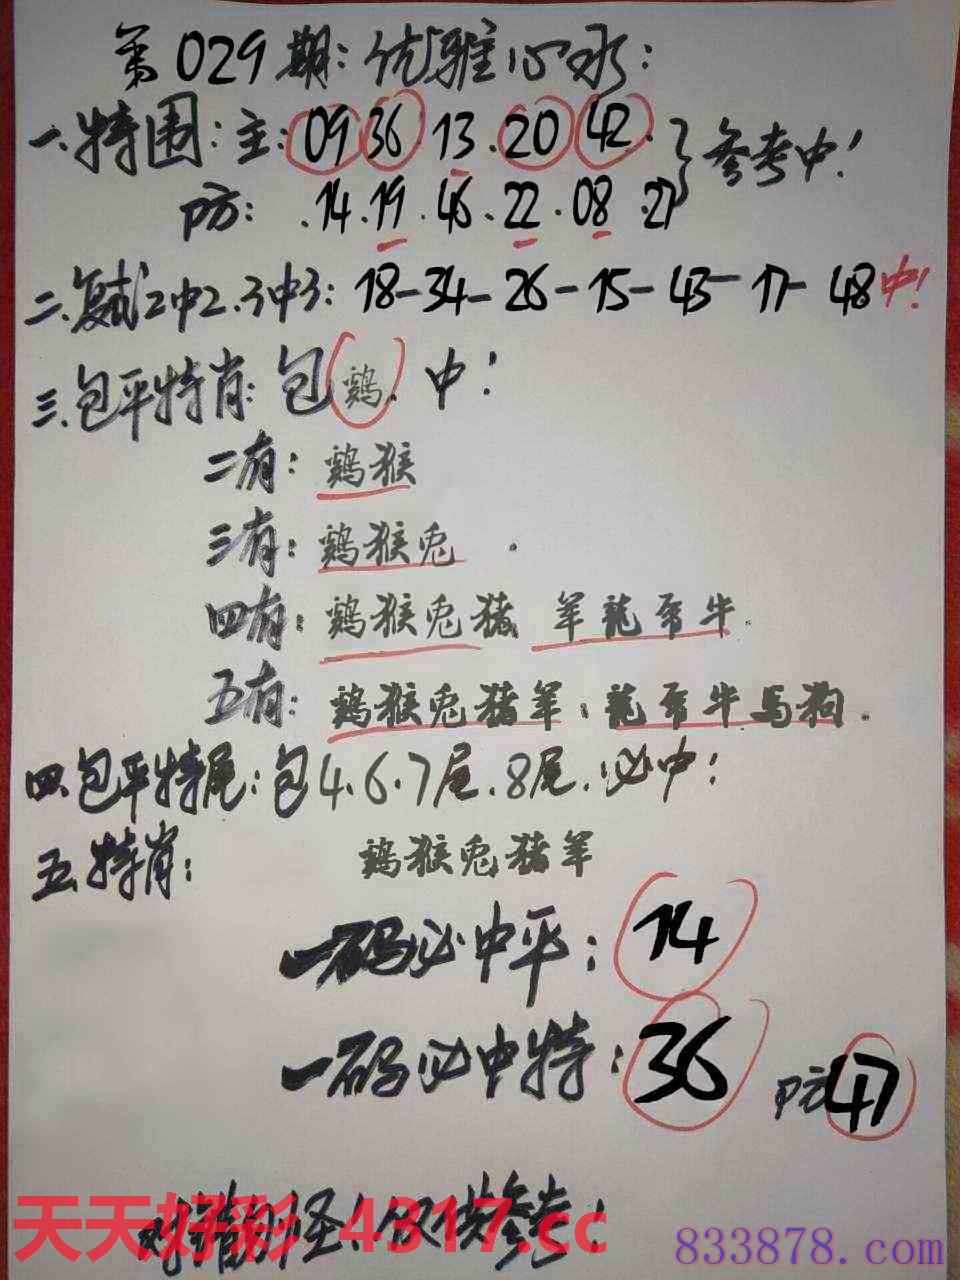 第029期：优雅心水：
一.特围：主：09 36·13·20 42·参考中！
防：·14·19·46·22·08·27
二.复试2中2.3中3：18-34-26-15-43-17-48中！
三.包平特肖：包鸡.中！
二有：鸡猴
三有：鸡猴兔.
四有：鸡猴兔猪 羊龍虎牛.
五有：鸡猴兔猪羊：龍虎牛馬狗.
四.包平特尾：包4.6.7尾.8尾.必中！
五.特肖：鸡猴兔猪羊
一码必中平：14
一码必中特：36 防47
对错勿怪！仅供参考！
天天好彩 4317.cc
833878.com